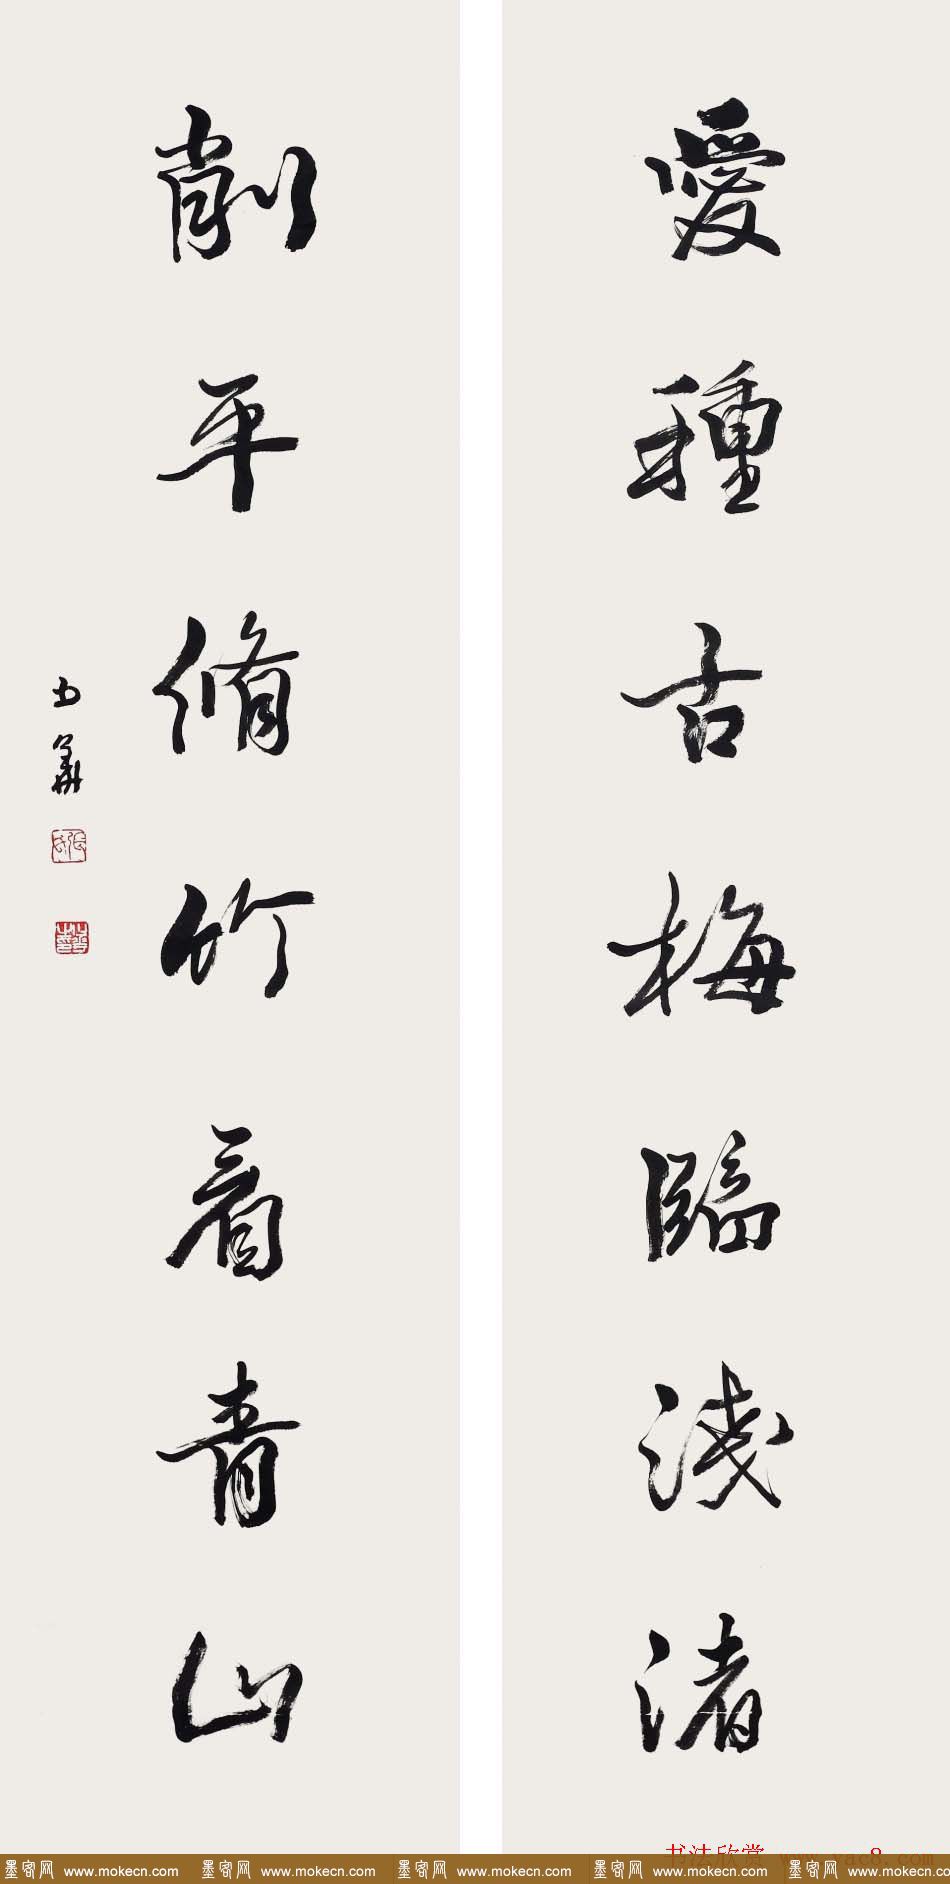 愛種古梅臨淺渚
削平脩竹看青山
書法欣賞 www.yac8.com
墨客网 www.mokecn.com 墨客网 www.mokecn.com 墨客网 www.mokecn.com 墨客网 www.mokecn.com 墨客网 www.mokecn.co